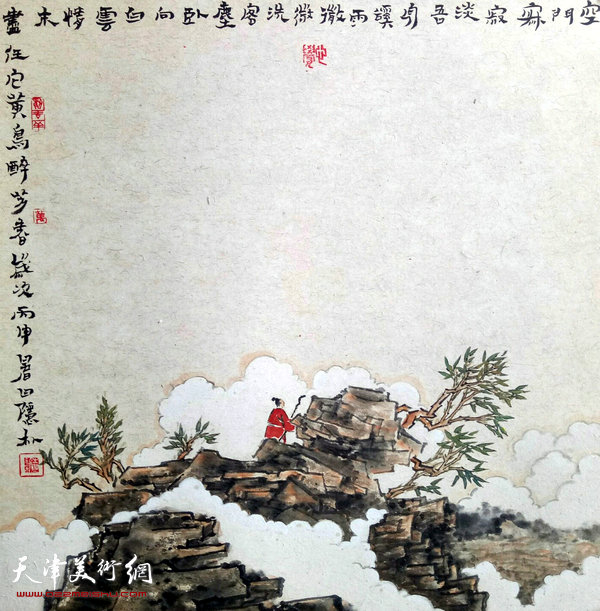 空門寂寂淡吾身谿雨微微洗客塵臥向白雲情未
盡任它黃鳥醉芳春歲次丙申
天津美術網